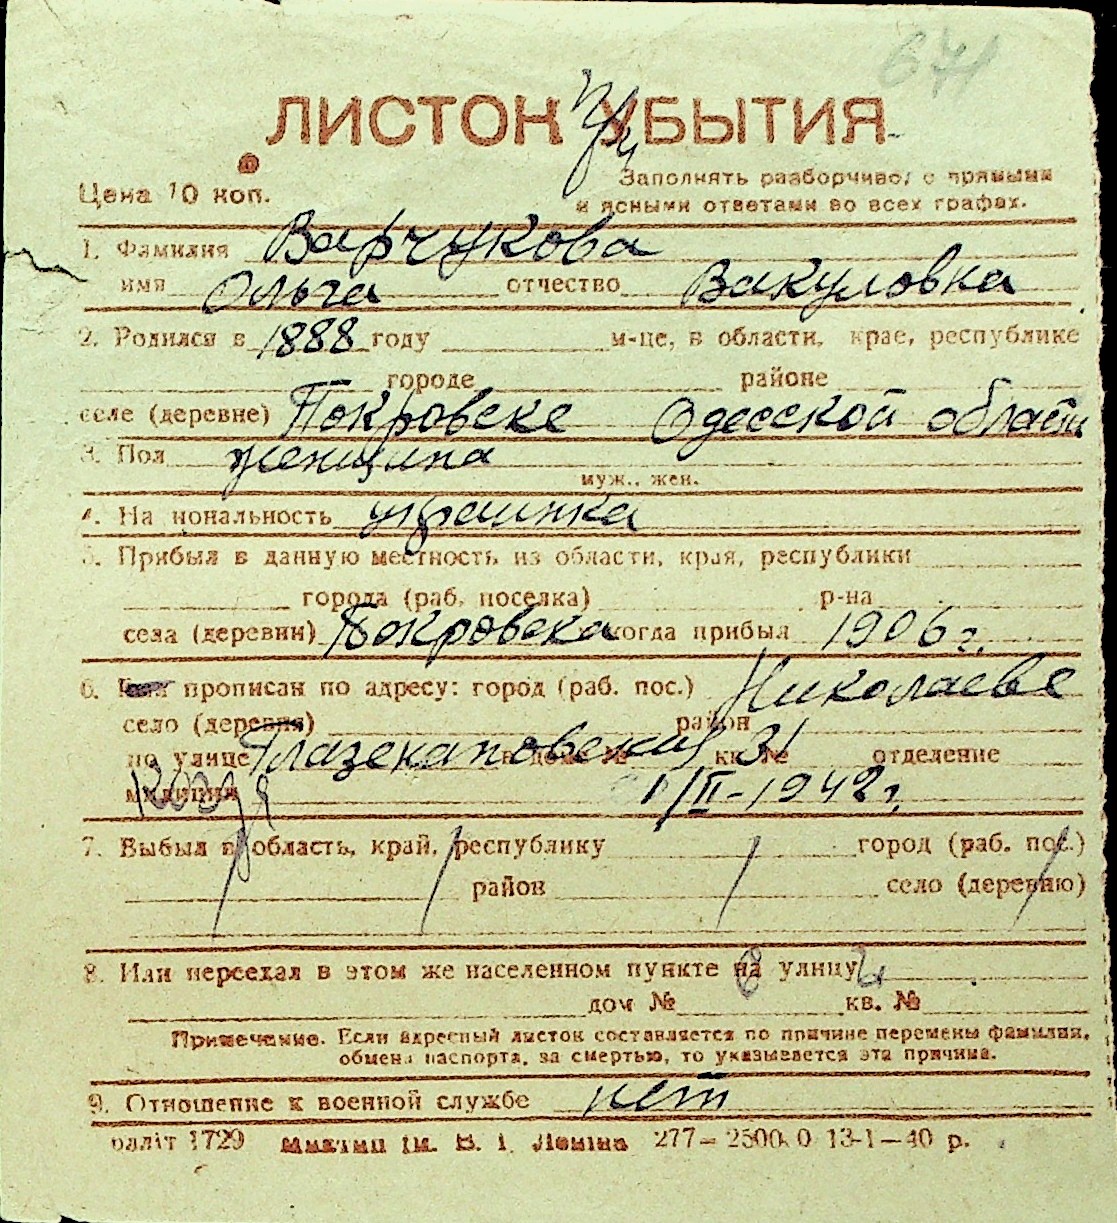 671
ЛИСТОК УБЫТИЯ
Цена 10 коп.
Заполнять разборчиво, с прямыми
и ясными ответами во всех графах.
1. Фамилия Варчукова
имя Ольга отчество Вакуловна
2. Родился в 1888 году м-це, в области, крае, республике
городе районе
селе (деревне) Покровске Одесской области
3. Пол женщина
муж., жен.
4. Национальность украинка
5. Прибыл в данную местность из области, края, республики
города (раб. поселка) р-на
села (деревни) Покровска когда прибыл 1906 г.
6. прописан по адресу: город (раб. пос.) Николаеве
село (деревня) район
по улице в доме № 31 кв. № отделение
милиции 1/II-1942 г.
7. Выбыл в область, край, республику город (раб. пос.)
район село (деревню)
8. Или переехал в этом же населенном пункте на улицу
дом № кв. №
Примечание. Если адресный листок составляется по причине перемены фамилии,
обмена паспорта, за смертью, то указывается эта причина.
9. Отношение к военной службе нет
ім. В. І. Леніна 277—2500.0 13-1—40 р.